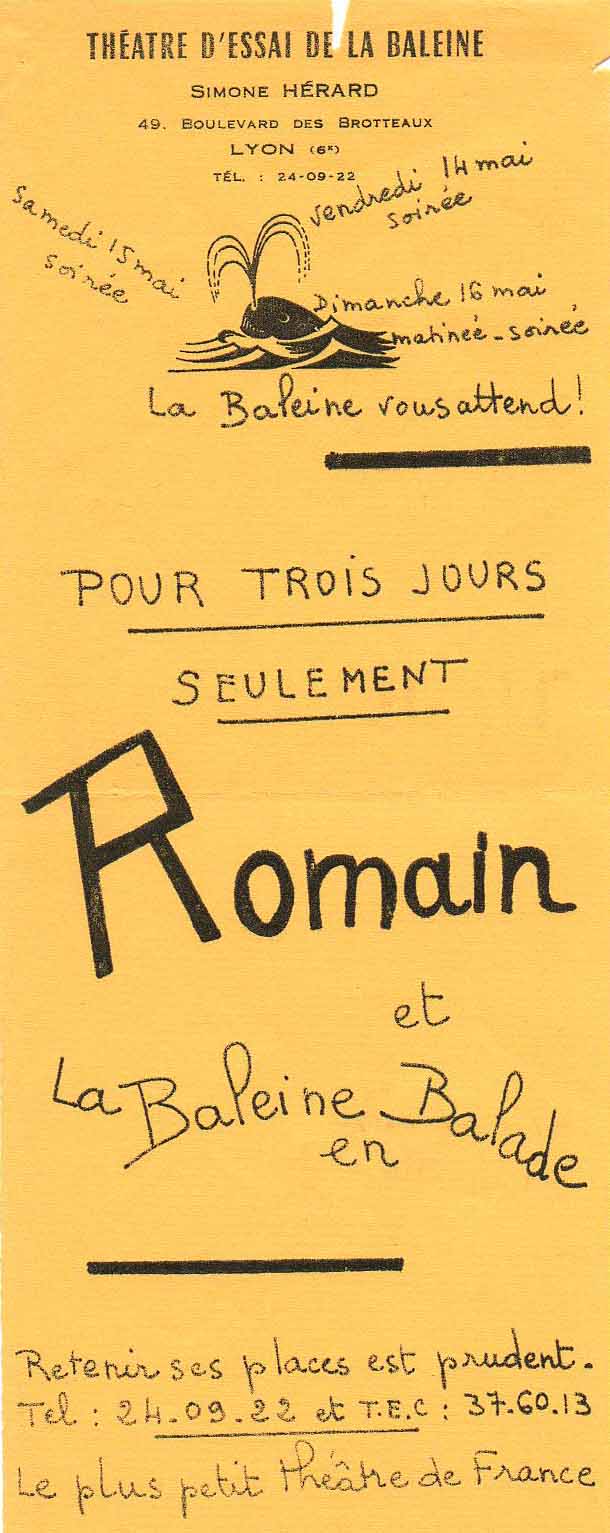 THÉATRE D'ESSAI DE LA BALEINE
SIMONE HÉRARD
49. BOULEVARD DES BROTTEAUX
LYON (6e)
TÉL. : 24-09-22
vendredi 14 mai
soirée
samedi 15 mai
soirée
Dimanche 16 mai
matineé - soireé
La Baleine vous attend!
POUR TROIS JOURS
SEULEMENT
Romain
et
La Baleine en Balade
Retenir ses places est prudent.
Tel : 24.09.22 et T.E.C : 37.60.13
Le plus petit théâtre de France